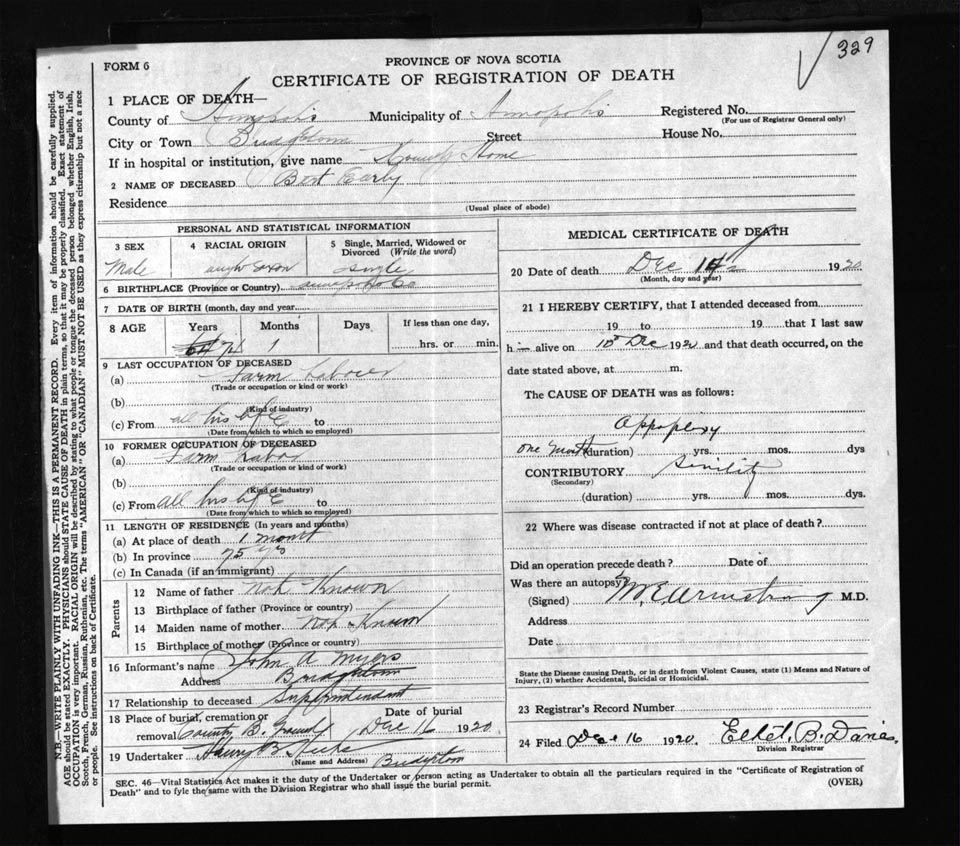 329
FORM 6
PROVINCE OF NOVA SCOTIA
CERTIFICATE OF REGISTRATION OF DEATH
1 PLACE OF DEATH—
County of Annapolis Municipality of Annapolis Registered No.
(For use of Registrar General only)
City or Town Street House No.
If in hospital or institution, give name County Home
2 NAME OF DECEASED Bert
Residence
(Usual place of abode)
PERSONAL AND STATISTICAL INFORMATION
3 SEX 4 RACIAL ORIGIN 5 Single, Married, Widowed or Divorced (Write the word)
Male single
6 BIRTHPLACE (Province or Country) Annapolis Co
7 DATE OF BIRTH (month, day and year
8 AGE Years Months Days If less than one day,
1 hrs. or min.
9 LAST OCCUPATION OF DECEASED
(a) Farm Laborer
(Trade or occupation or kind of work)
(b)
(Kind of industry)
(c) From all his life to
(Date from which to which so employed)
10 FORMER OCCUPATION OF DECEASED
(a) Farm Labor
(Trade or occupation or kind of work)
(b)
(Kind of industry)
(c) From all his life to
(Date from which to which so employed)
11 LENGTH OF RESIDENCE (In years and months)
(a) At place of death 1 month
(b) In province 75 yrs
(c) In Canada (if an immigrant)
Parents
12 Name of father Not Known
13 Birthplace of father (Province or country)
14 Maiden name of mother Not Known
15 Birthplace of mother (Province or country)
16 Informant's name John A Myers
Address Bridgetown
17 Relationship to deceased Superintendant
18 Place of burial, cremation or removal County B. Ground Date of burial Dec 16 1920
19 Undertaker Harry B
(Name and Address)
MEDICAL CERTIFICATE OF DEATH
20 Date of death Dec 1920
(Month, day and year)
21 I HEREBY CERTIFY, that I attended deceased from
19 to 19 that I last saw
h alive on Dec 192 and that death occurred, on the
date stated above, at m.
The CAUSE OF DEATH was as follows:
one month (duration) yrs. mos. dys
CONTRIBUTORY Senility
(Secondary)
(duration) yrs. mos. dys.
22 Where was disease contracted if not at place of death?
Did an operation precede death? Date of
Was there an autopsy?
(Signed) M E Armstrong M.D.
Address
Date
State the Disease causing Death, or in death from Violent Causes, state (1) Means and Nature of
Injury, (2) whether Accidental, Suicidal or Homicidal.
23 Registrar's Record Number
24 Filed Dec 16 1920. B.
Division Registrar
SEC. 46—Vital Statistics Act makes it the duty of the Undertaker or person acting as Undertaker to obtain all the particulars required in the "Certificate of Registration of
Death" and to fyle the same with the Division Registrar who shall issue the burial permit. (OVER)
N.B.—WRITE PLAINLY WITH UNFADING INK—THIS IS A PERMANENT RECORD. Every item of information should be carefully supplied.
AGE should be stated EXACTLY. PHYSICIANS should STATE CAUSE OF DEATH in plain terms, so that it may be properly classified. Exact statement of
OCCUPATION is very important. RACIAL ORIGIN will be described by stating to what people or tongue the deceased person belonged whether English, Irish,
Scotch, French, German, Russian, Ruthenian, etc. The terms "AMERICAN" OR "CANADIAN" MUST NOT BE USED as they express citizenship but not a race
or people. See instructions on back of Certificate.